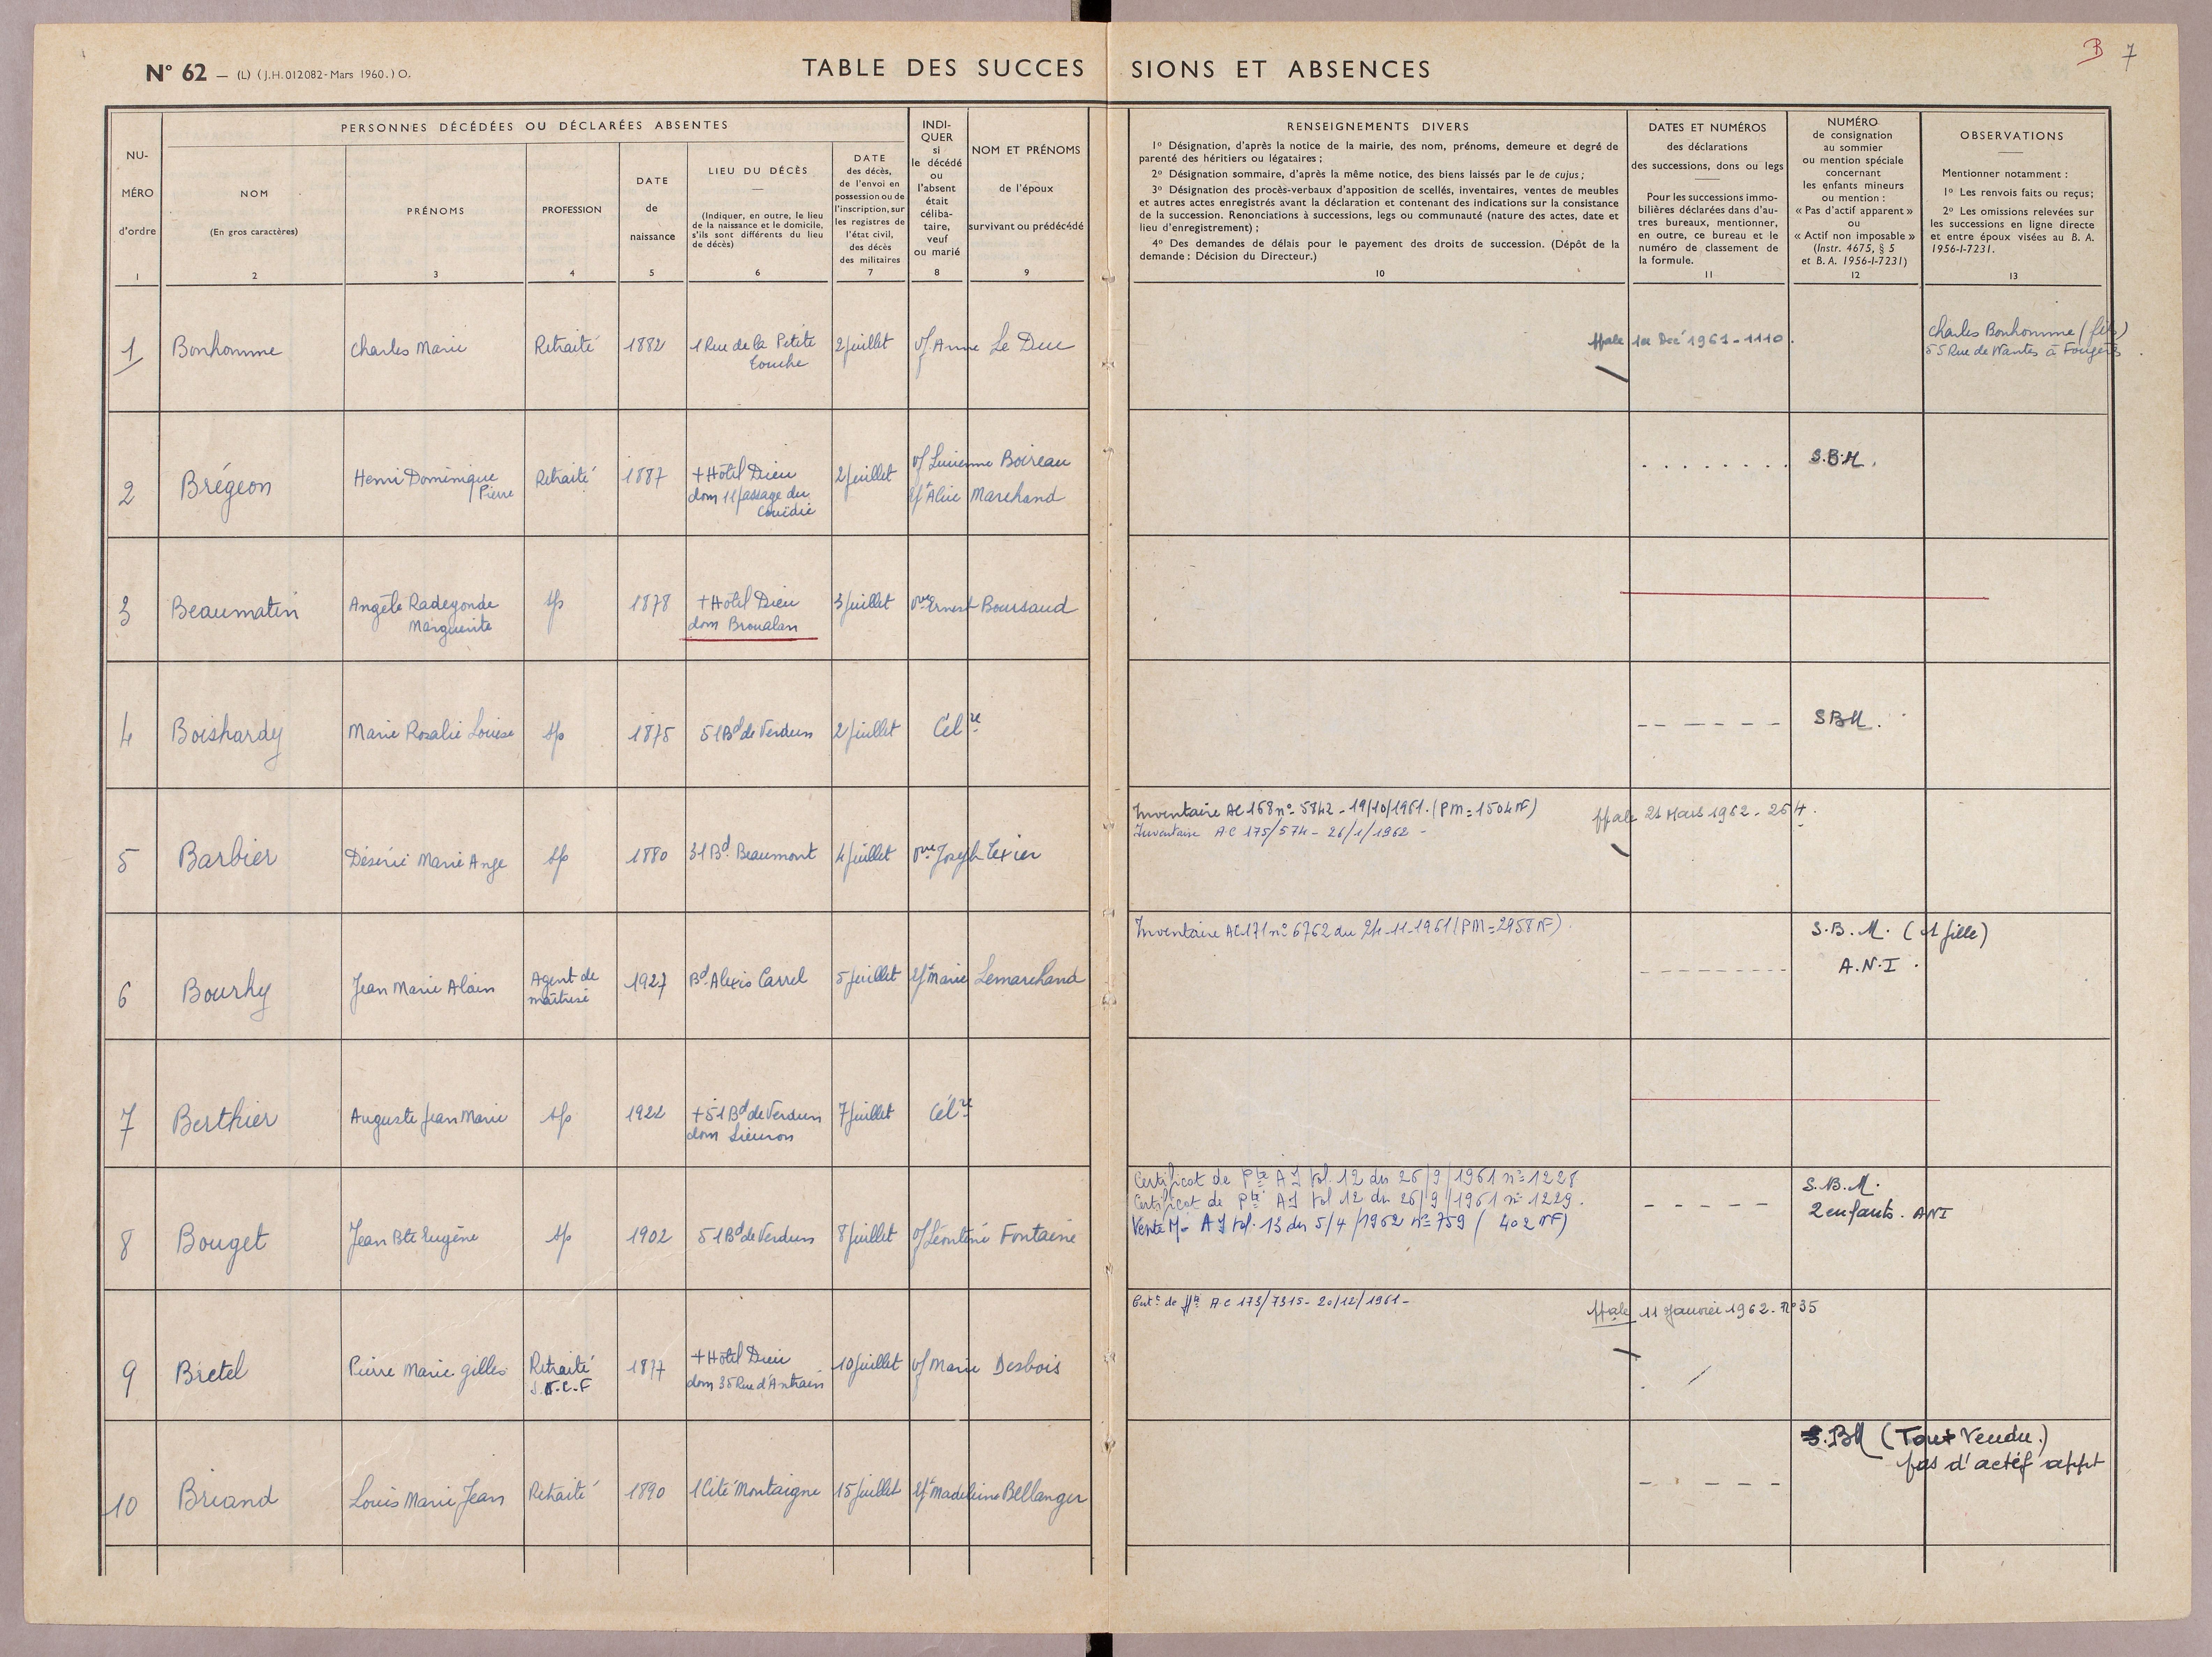 N° 62 — (L) (J.H. 012082 - Mars 1960.) O.
TABLE DES SUCCESSIONS ET ABSENCES
B 7
NUMÉRO d'ordre
1
PERSONNES DÉCÉDÉES OU DÉCLARÉES ABSENTES
NOM
(En gros caractères)
2
PRÉNOMS
3
PROFESSION
4
DATE
de
naissance
5
LIEU DU DÉCÈS
(Indiquer, en outre, le lieu
de la naissance et le domicile,
s'ils sont différents du lieu
de décès)
6
DATE
des décès,
de l'envoi en
possession ou de
l'inscription, sur
les registres de
l'état civil,
des décès
des militaires
7
INDI-
QUER
si
le décédé
ou
l'absent
était
céliba-
taire,
veuf
ou marié
8
NOM ET PRÉNOMS
de l'époux
survivant ou prédécédé
9
RENSEIGNEMENTS DIVERS
1° Désignation, d'après la notice de la mairie, des nom, prénoms, demeure et degré de
parenté des héritiers ou légataires ;
2° Désignation sommaire, d'après la même notice, des biens laissés par le de cujus ;
3° Désignation des procès-verbaux d'apposition de scellés, inventaires, ventes de meubles
et autres actes enregistrés avant la déclaration et contenant des indications sur la consistance
de la succession. Renonciations à successions, legs ou communauté (nature des actes, date et
lieu d'enregistrement) ;
4° Des demandes de délais pour le payement des droits de succession. (Dépôt de la
demande : Décision du Directeur.)
10
DATES ET NUMÉROS
des déclarations
des successions, dons ou legs
Pour les successions immo-
bilières déclarées dans d'au-
tres bureaux, mentionner,
en outre, ce bureau et le
numéro de classement de
la formule.
11
NUMÉRO
de consignation
au sommier
ou mention spéciale
concernant
les enfants mineurs
ou mention :
« Pas d'actif apparent »
ou
« Actif non imposable »
(Instr. 4675, § 5
et B. A. 1956-I-7231)
12
OBSERVATIONS
Mentionner notamment :
1° Les renvois faits ou reçus ;
2° Les omissions relevées sur
les successions en ligne directe
et entre époux visées au B. A.
1956-I-7231.
13
1 Bonhomme Charles Marie Retraité 1882 1 Rue de la Petite 2 juillet vf Anne Le Duc
Touche
ffale 1er Déc 1961 - 1110.
Charles Bonhomme (fils)
55 Rue de Nantes à Fougères.
2 Brégeon Henri Dominique Retraité 1887 + Hôtel Dieu 2 juillet vf Lucienne Boireau
Pierre dom 11 passage du Ép Alice Marchand
Couëdic
S.B.M.
3 Beaumatin Angèle Radegonde sp 1878 + Hôtel Dieu 3 juillet vve Ernest Boursaud
Marguerite dom Broualan
4 Boishardy Marie Rosalie Louise sp 1875 51 Bd de Verdun 2 juillet Cél re
SBM.
5 Barbier Désirée Marie Ange sp 1880 31 Bd Beaumont 4 juillet vve Joseph Texier
Inventaire AC 168 n° 5842 - 19/10/1961. (PM = 1504 NF)
Inventaire AC 175/574 - 26/1/1962 -
ffale 21 Mars 1962 - 264.
6 Bourhy Jean Marie Alain Agent de 1927 Bd Alexis Carrel 5 juillet Ép Marie Lemarchand
maîtrise
Inventaire AC 171 n° 6762 du 24-11-1961 (PM = 2958 NF).
S.B.M. (1 fille)
A.N.I.
7 Berthier Auguste Jean Marie sp 1922 + 51 Bd de Verdun 7 juillet Cél re
dom Lieuron
8 Bouget Jean Bte Eugène sp 1902 51 Bd de Verdun 8 juillet vf Léontine Fontaine
Certificat de Pté AJ Vol. 12 du 26/9/1961 n° 1228
Certificat de Pté AJ Vol 12 du 26/9/1961 n° 1229.
Vente M. AJ Vol. 13 du 5/4/1962 n° 759 ( 402 NF)
S.B.M.
2 enfants. ANI
9 Bretel Pierre Marie Gilles Retraité 1877 + Hôtel Dieu 10 juillet vf Marie Desbois
S.N.C.F dom 35 Rue d'Antrain
AC 173/7315 - 20/12/1961 -
ffale 11 Janvier 1962 - N° 35
10 Briand Louis Marie Jean Retraité 1890 1 Cité Montaigne 15 juillet Ép Madeleine Bellanger
S.BM (Tout Vendu.)
pas d'actif appt